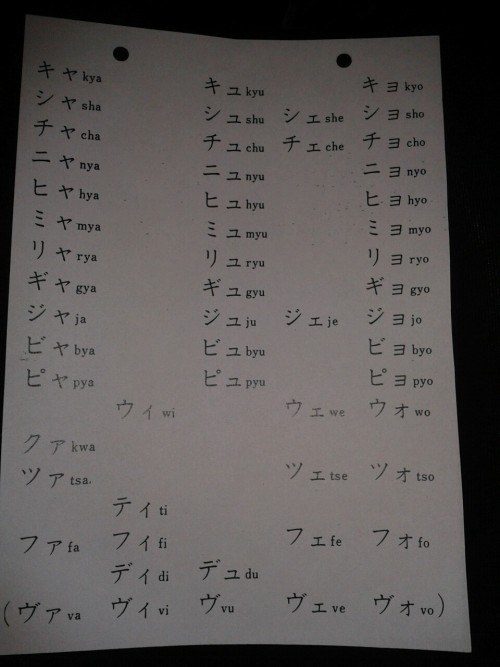 キャ kya キュ kyu キョ kyo
シャ sha シュ shu シェ she ショ sho
チャ cha チュ chu チェ che チョ cho
ニャ nya ニュ nyu ニョ nyo
ヒャ hya ヒュ hyu ヒョ hyo
ミャ mya ミュ myu ミョ myo
リャ rya リュ ryu リョ ryo
ギャ gya ギュ gyu ギョ gyo
ジャ ja ジュ ju ジェ je ジョ jo
ビャ bya ビュ byu ビョ byo
ピャ pya ピュ pyu ピョ pyo
ウィ wi ウェ we ウォ wo
クァ kwa
ツァ tsa. ツェ tse ツォ tso
ティ ti
ファ fa フィ fi フェ fe フォ fo
ディ di デュ du
(ヴァ va ヴィ vi ヴ vu ヴェ ve ヴォ vo)